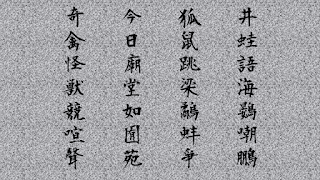 井蛙語海鷃嘲鵬
狐鼠跳梁鷸蚌爭
今日廟堂如囿苑
奇禽怪獸競喧聲